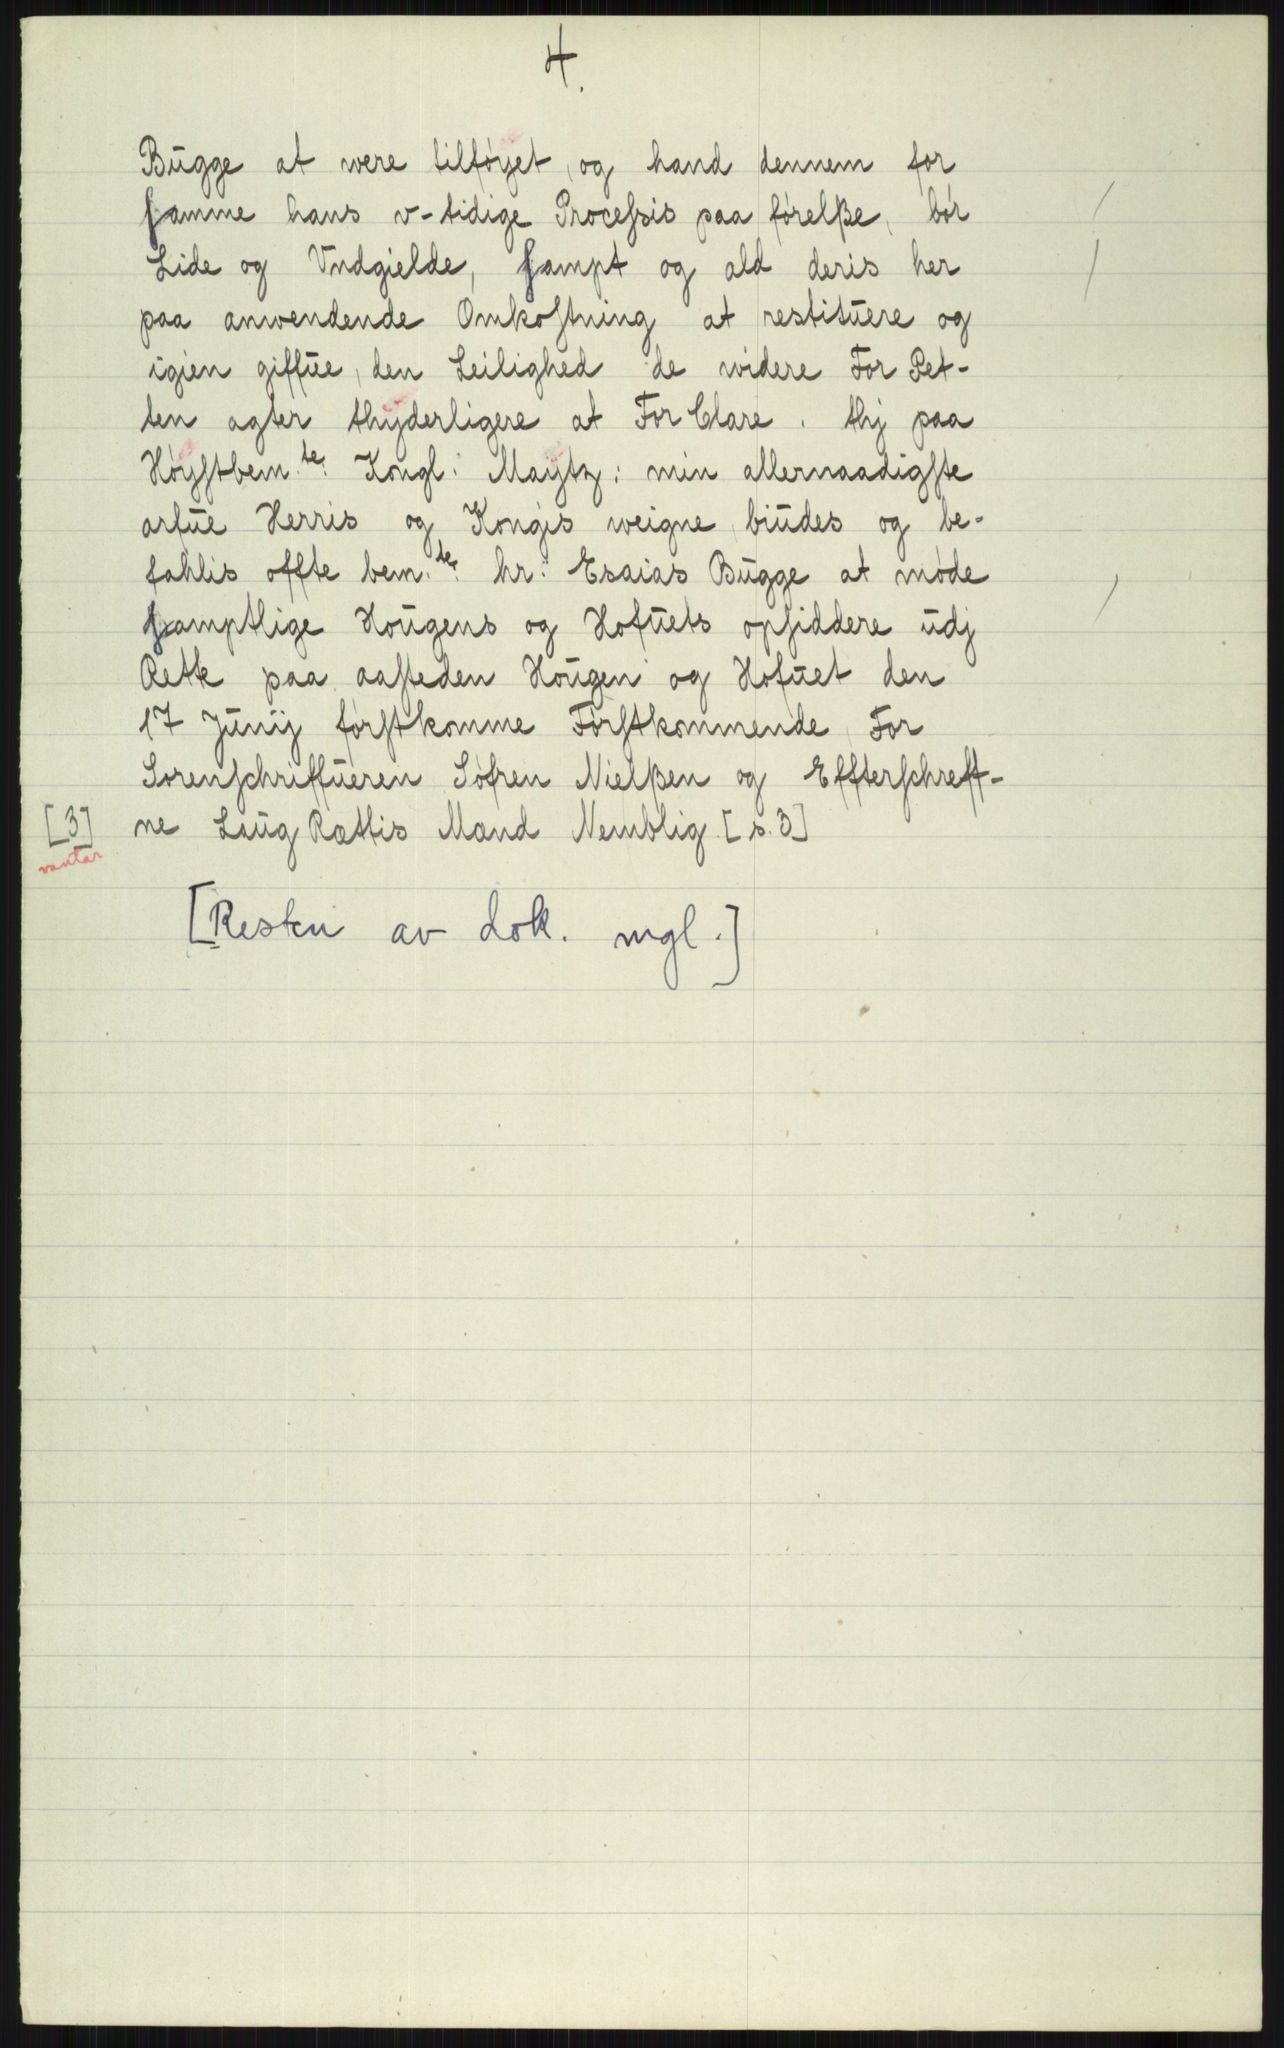 4.
Bugge at were tilføyet, og hand dennem for
ſamme hans v-tidige Proceſsis paa førelße, bør
Lide og Vndgielde, ſampt og ald deris her
paa anwendende Omkoſtning at restituere og
igien giffue, den Leilighed de widere For Ret-
ten agter thyderligere at For Clare. thj paa
Høyſtbem.te: Kongl: Maytz: min allernaadigſte
arfue Herris og Kongis weigne biudes og be-
fahlis offte bem.te: hr: Esaias Bugge at møde
ſamptlige Hougens og Hofuets opſiddere udj
Rette paa aaſteden Hougen og Hofuet den
17 Junij førſtkomme Førſtkommende For
Sorenſchriffueren Søfren Nielßen og Effterſchreff-
[3] ne Laug Rættis Mænd Nemblig [s. 3]
vantar
[Resten av dok. mgl.]